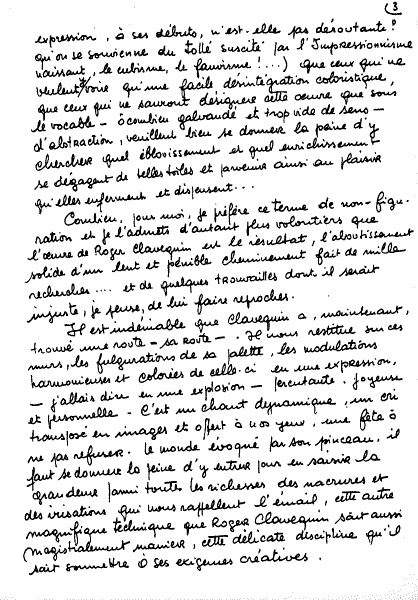 3
expression, à ses débuts, n'est-elle pas déroutante ?
qu'on se souvienne du tollé suscité par l'Impressionnisme
naissant, le cubisme, le fauvisme !...) que ceux qui ne
veulent y voir qu'une facile désintégration coloristique,
que ceux qui ne sauront désigner cette œuvre que sous
le vocable - ô combien galvaudé et trop vide de sens -
d'abstraction, veuillent bien se donner la peine d'y
chercher quel éblouissement et quel enrichissement
se dégagent de telles toiles et parvenir ainsi au plaisir
qu'elles enferment et dispensent...
Combien, pour moi, je préfère ce terme de non-figu-
ration et je l'admets d'autant plus volontiers que
l'œuvre de Roger Clavequin est le résultat, l'aboutissement
solide d'un lent et pénible cheminement fait de mille
recherches .... et de quelques trouvailles dont il serait
injuste, je pense, de lui faire reproches.
Il est indéniable que Clavequin a, maintenant,
trouvé une route - sa route - . Il nous restitue sur ces
murs, les fulgurations de sa palette, les modulations
harmonieuses et colorées de celle-ci en une expression,
- j'allais dire en une explosion - percutante. Joyeuse
et personnelle - C'est un chant dynamique, un cri
transposé en images et offert à nos yeux, une fête à
ne pas refuser. Le monde évoqué par son pinceau, il
faut se donner la peine d'y entrer pour en saisir la
grandeur parmi toutes les richesses des nacrures et
des irisations qui nous rappellent l'émail, cette autre
magnifique technique que Roger Clavequin sait aussi
magistralement manier, cette délicate discipline qu'il
sait soumettre à ses exigences créatives.